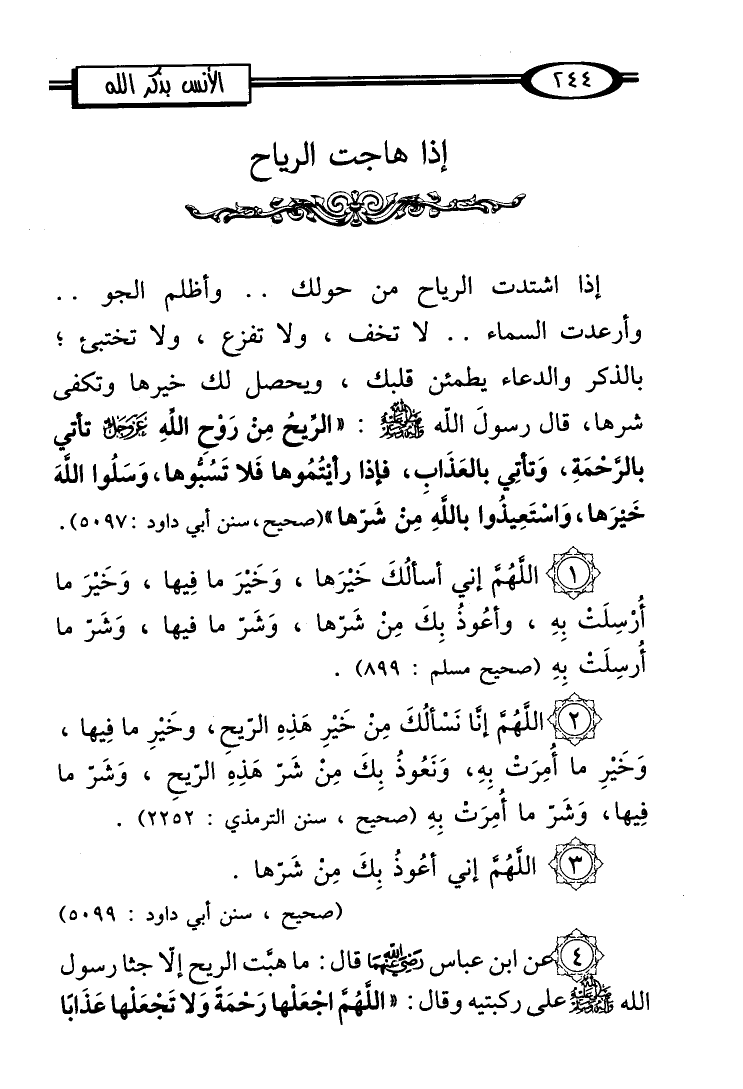 الأنس بذكر الله
٢٤٤
إذا هاجت الرياح
إذا اشتدت الرياح من حولك .. وأظلم الجو ..
وأرعدت السماء .. لا تخف ، ولا تفزع ، ولا تختبئ ؛
بالذكر والدعاء يطمئن قلبك ، ويحصل لك خيرها وتكفى
شرها، قال رسولَ اللّه ﷺ : «الرِّيحُ مِنْ رَوْحِ اللَّهِ عَزَّوَجَلَّ تأتي
بالرَّحْمَةِ، وَتأتِي بالعَذَابِ، فإذا رأيْتُمُوها فَلا تَسُبُّوها، وَسَلُوا اللَّهَ
خَيْرَها، وَاسْتَعِيذُوا باللَّهِ مِنْ شَرّها»(صحيح، سنن أبي داود :٥٠٩٧).
١ اللَّهُمَّ إني أسألُكَ خَيْرَها ، وَخَيْرَ ما فِيها ، وَخَيْرَ ما
أُرْسِلَتْ بِهِ ، وأعُوذُ بِكَ مِنْ شَرّها ، وَشَرّ ما فيها ، وَشَرّ ما
أُرسِلَتْ بِهِ (صحيح مسلم : ٨٩٩) .
٢ اللَّهُمَّ إنَّا نَسألُكَ مِنْ خَيْرِ هَذِهِ الرّيحِ، وخَيْرِ ما فِيها ،
وَخَيْرِ ما أُمِرَتْ بِهِ، وَنَعُوذُ بِكَ مِنْ شَرّ هَذِهِ الرّيحِ ، وَشَرّ ما
فِيها، وَشَرّ ما أُمِرَتْ بِهِ (صحيح ، سنن الترمذي : ٢٢٥٢) .
٣ اللَّهُمَّ إني أعُوذُ بِكَ مِنْ شَرّها .
(صحيح ، سنن أبي داود : ٥٠٩٩)
٤ عن ابن عباس رَضِيَ اللَّهُ عَنْهُمَا قال : ما هبَّت الريح إلّا جثا رسول
الله ﷺ على ركبتيه وقال : «اللَّهُمَّ اجْعَلْها رَحْمَةً وَلا تَجْعَلْها عَذَابًا